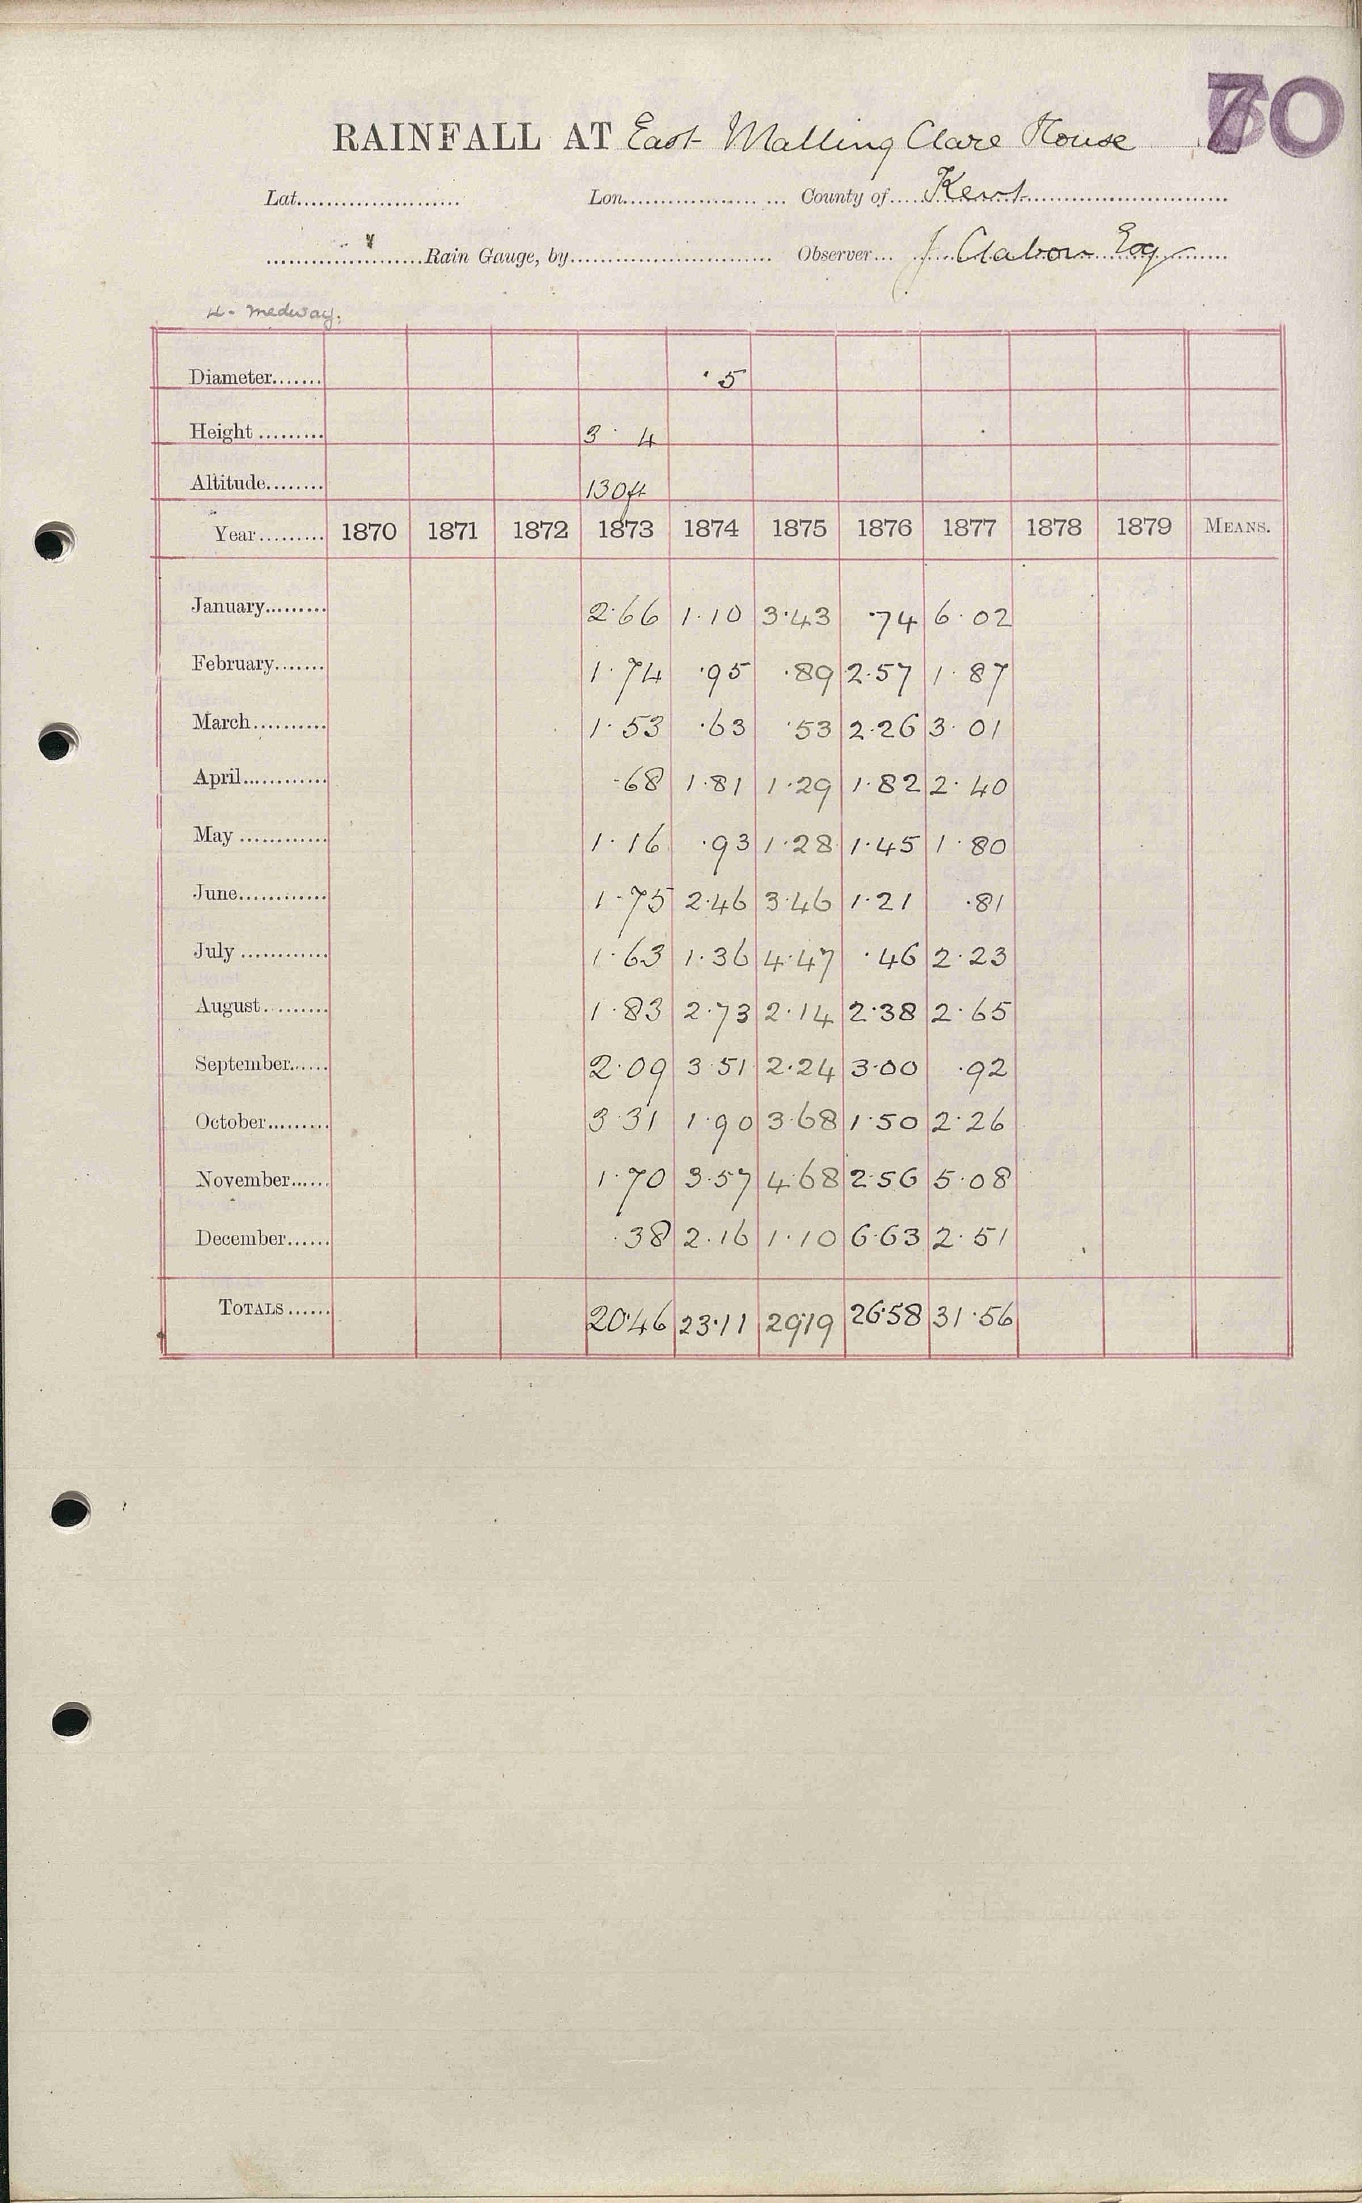 70
RAINFALL AT East Malling Clare House
Lat...................... Lon..................... County of.... Kent
.......................Rain Gauge, by............................ Observer... J Clabon Esq
4. Medway.
Diameter....... · 5
Height ......... 3 · 4
Altitude........ 130 ft
Year......... 1870 1871 1872 1873 1874 1875 1876 1877 1878 1879 MEANS.
January......... 2·66 1·10 3·43 ·74 6·02
February....... 1·74 ·95 ·89 2·57 1·87
March.......... 1·53 ·63 ·53 2·26 3·01
April............ ·68 1·81 1·29 1·82 2·40
May ............. 1·16 ·93 1·28 1·45 1·80
June............. 1·75 2·46 3·46 1·21 ·81
July ............. 1·63 1·36 4·47 ·46 2·23
August.......... 1·83 2·73 2·14 2·38 2·65
September...... 2·09 3·51 2·24 3·00 ·92
October......... 3·31 1·90 3·68 1·50 2·26
November...... 1·70 3·57 4·68 2·56 5·08
December...... ·38 2·16 1·10 6·63 2·51
TOTALS...... 20·46 23·11 29·19 26·58 31·56